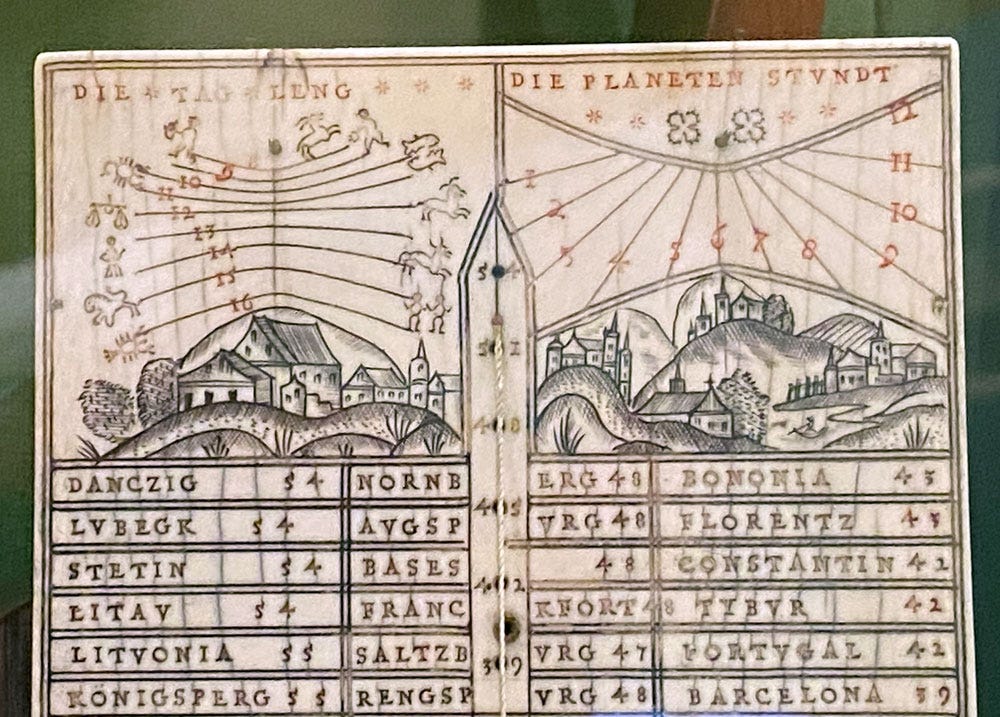 DIE TAG LENG
DIE PLANETEN STVNDT
9
10
11
12
13
14
15
16
12
11
10
9
8
7
6
5
4
3
2
1
54
51
48
45
42
39
DANCZIG 54 NORNBERG 48 BONONIA 43
LVBEGK 54 AVGSPVRG 48 FLORENTZ 43
STETIN 54 BASES 48 CONSTANTIN 42
LITAV 54 FRANCKFORT 48 TYBVR 42
LITVONIA 55 SALTZBVRG 47 PORTVGAL 42
KONIGSPERG 55 RENGSPVRG 48 BARCELONA 39